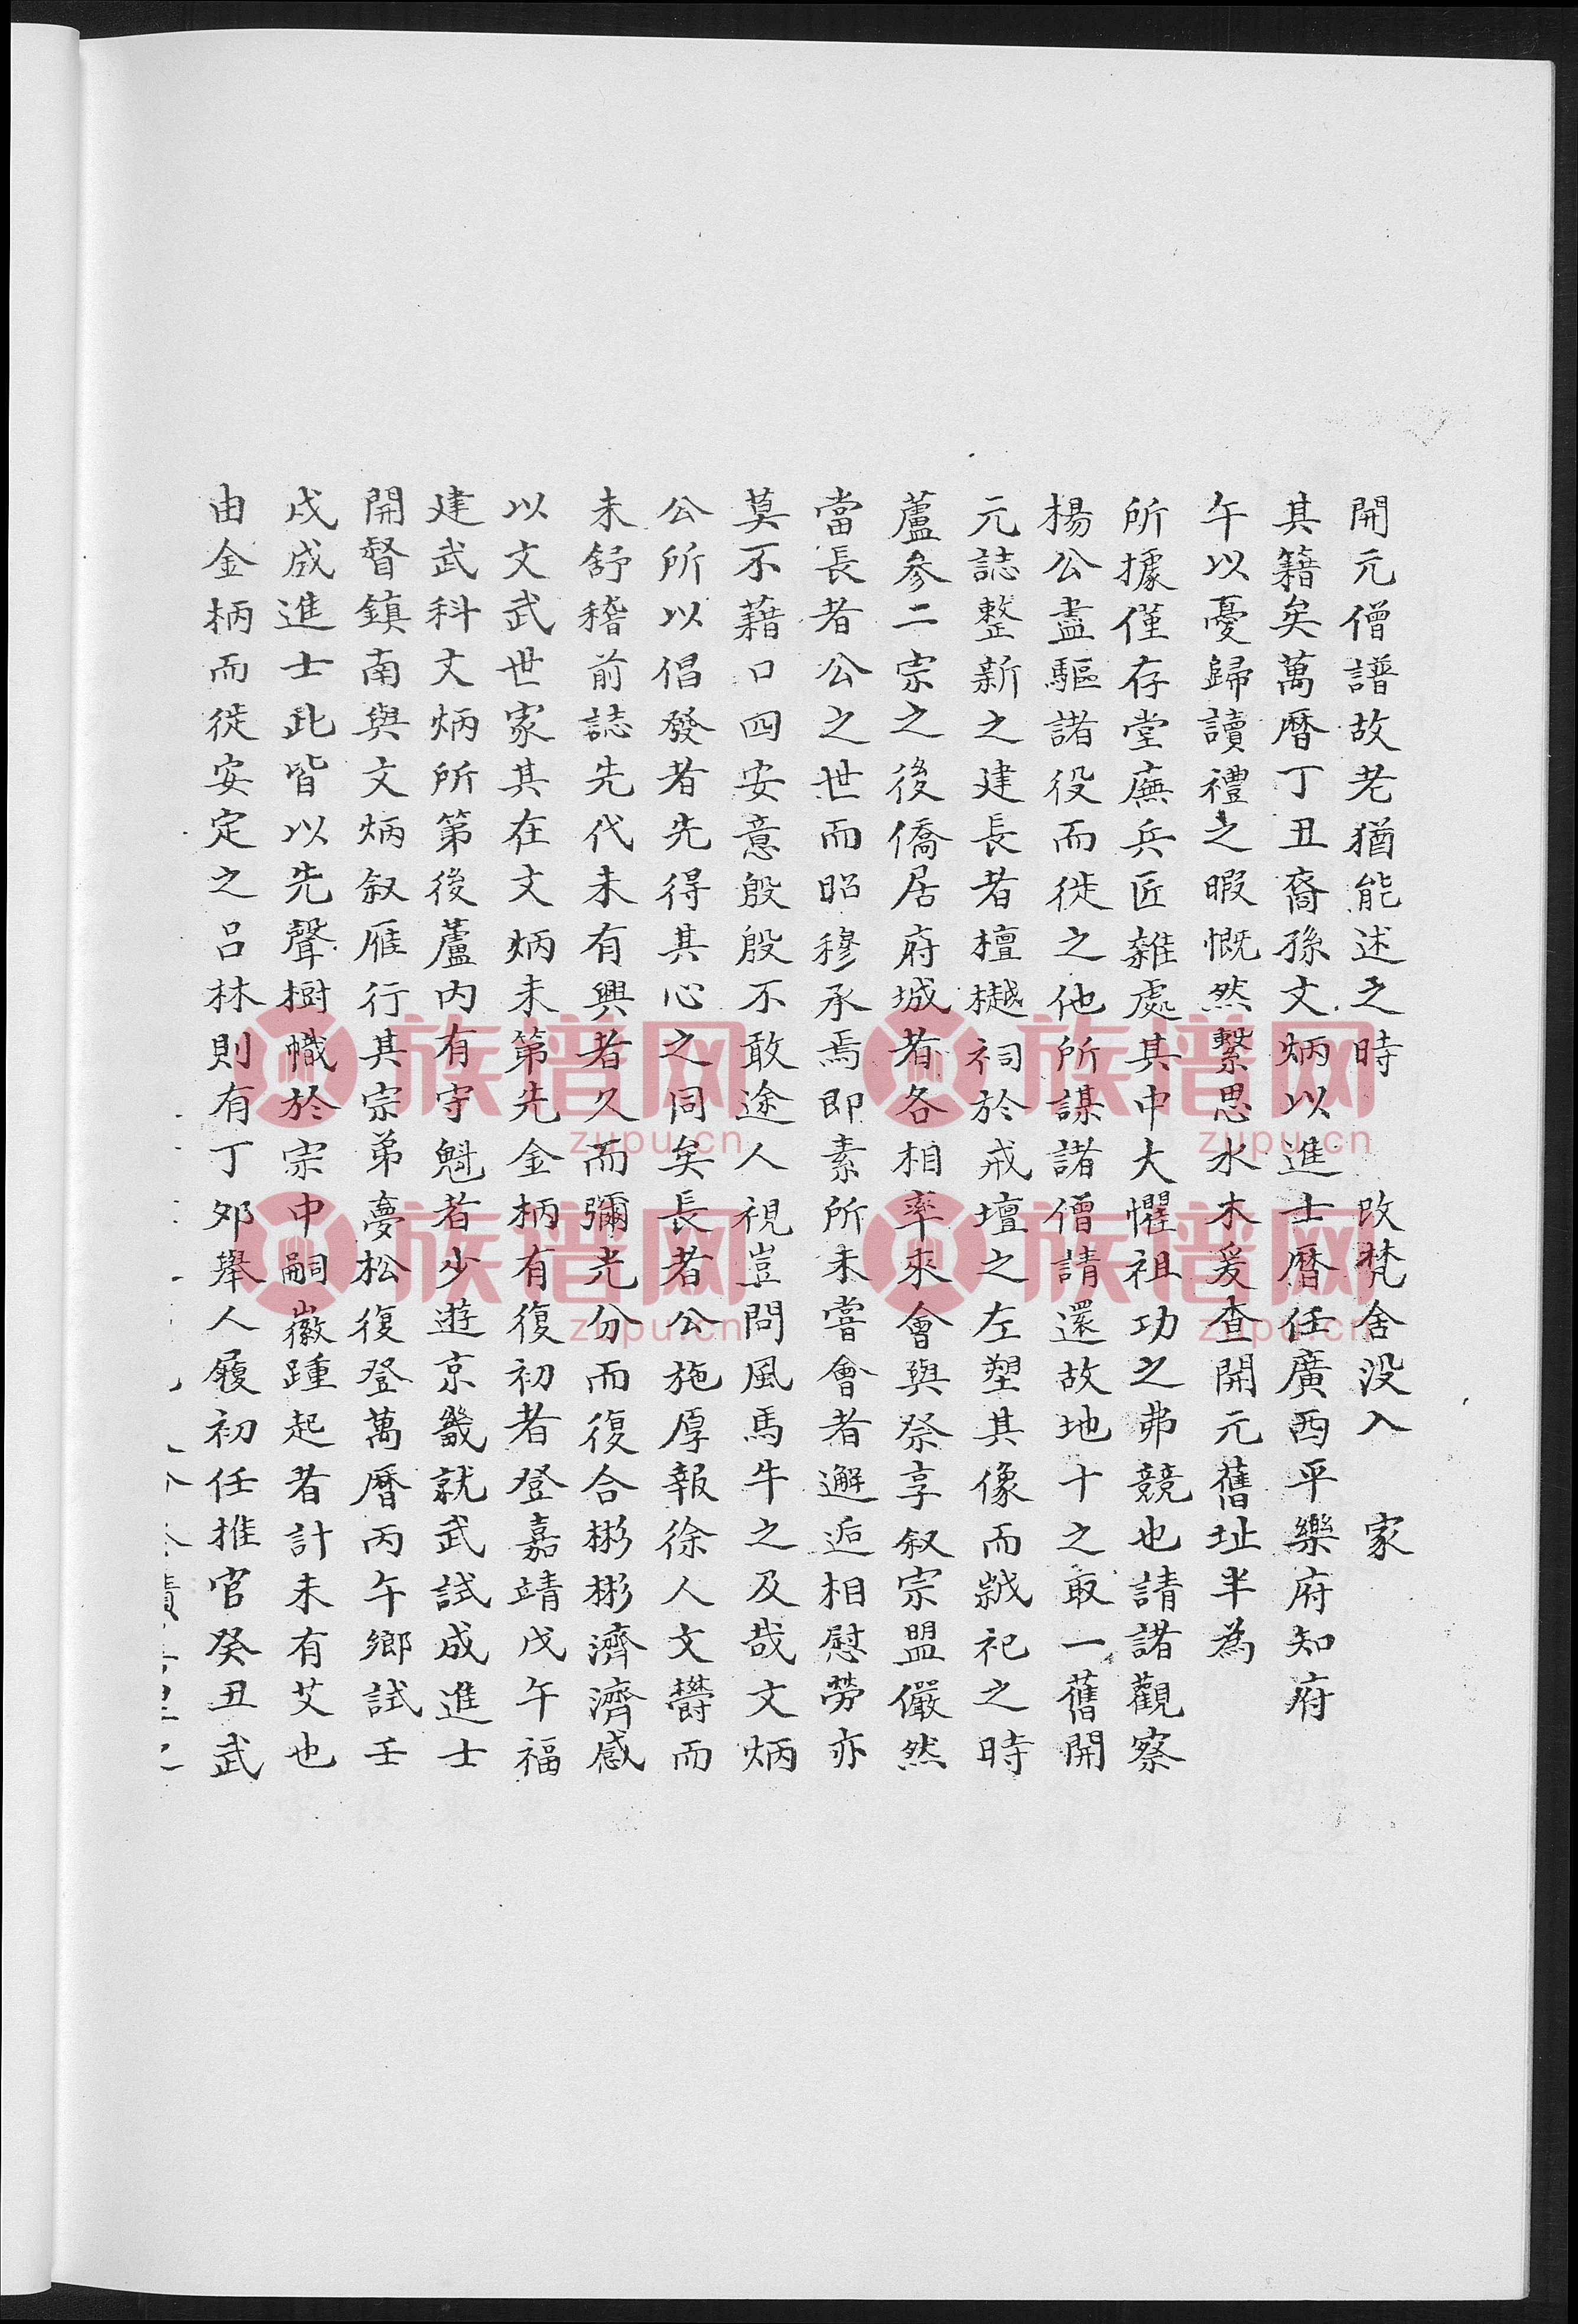 開元僧譜故老猶能述之時　改梵舍没入　家
其籍矣萬曆丁丑裔孫文炳以進士曆任廣西平樂府知府
午以憂歸讀禮之暇慨然繫思水木爰查開元舊址半為
所據僅存堂廡兵匠雜處其中大懼祖功之弗競也請諸觀察
楊公盡驅諸役而徙之他所謀諸僧請還故地十之取一舊開
元誌整新之建長者檀樾祠於戒壇之左塑其像而祀之時
蘆參二宗之後僑居府城者各相率來會與祭享叙宗盟儼然
當長者公之世而昭穆承焉即素所未嘗會者邂逅相慰勞亦
莫不藉口四安意殷殷不敢途人視豈問風馬牛之及哉文炳
公所以倡發者先得其心之同矣長者公施厚報徐人文欝而
未舒稽前誌先代未有興者久而彌光分而復合彬彬濟濟感
以文武世家其在文炳未第先金柄有復初者登嘉靖戊午福
建武科文炳所第後蘆内有守魁者少遊京畿就武試成進士
開督鎮南與文炳叙雁行其宗弟夢松復登萬曆丙午鄉試壬
戌成進士此皆以先聲樹幟於宗中嗣徽踵起者計未有艾也
由金柄而徙安定之呂林則有丁夘舉人履初任推官癸丑武